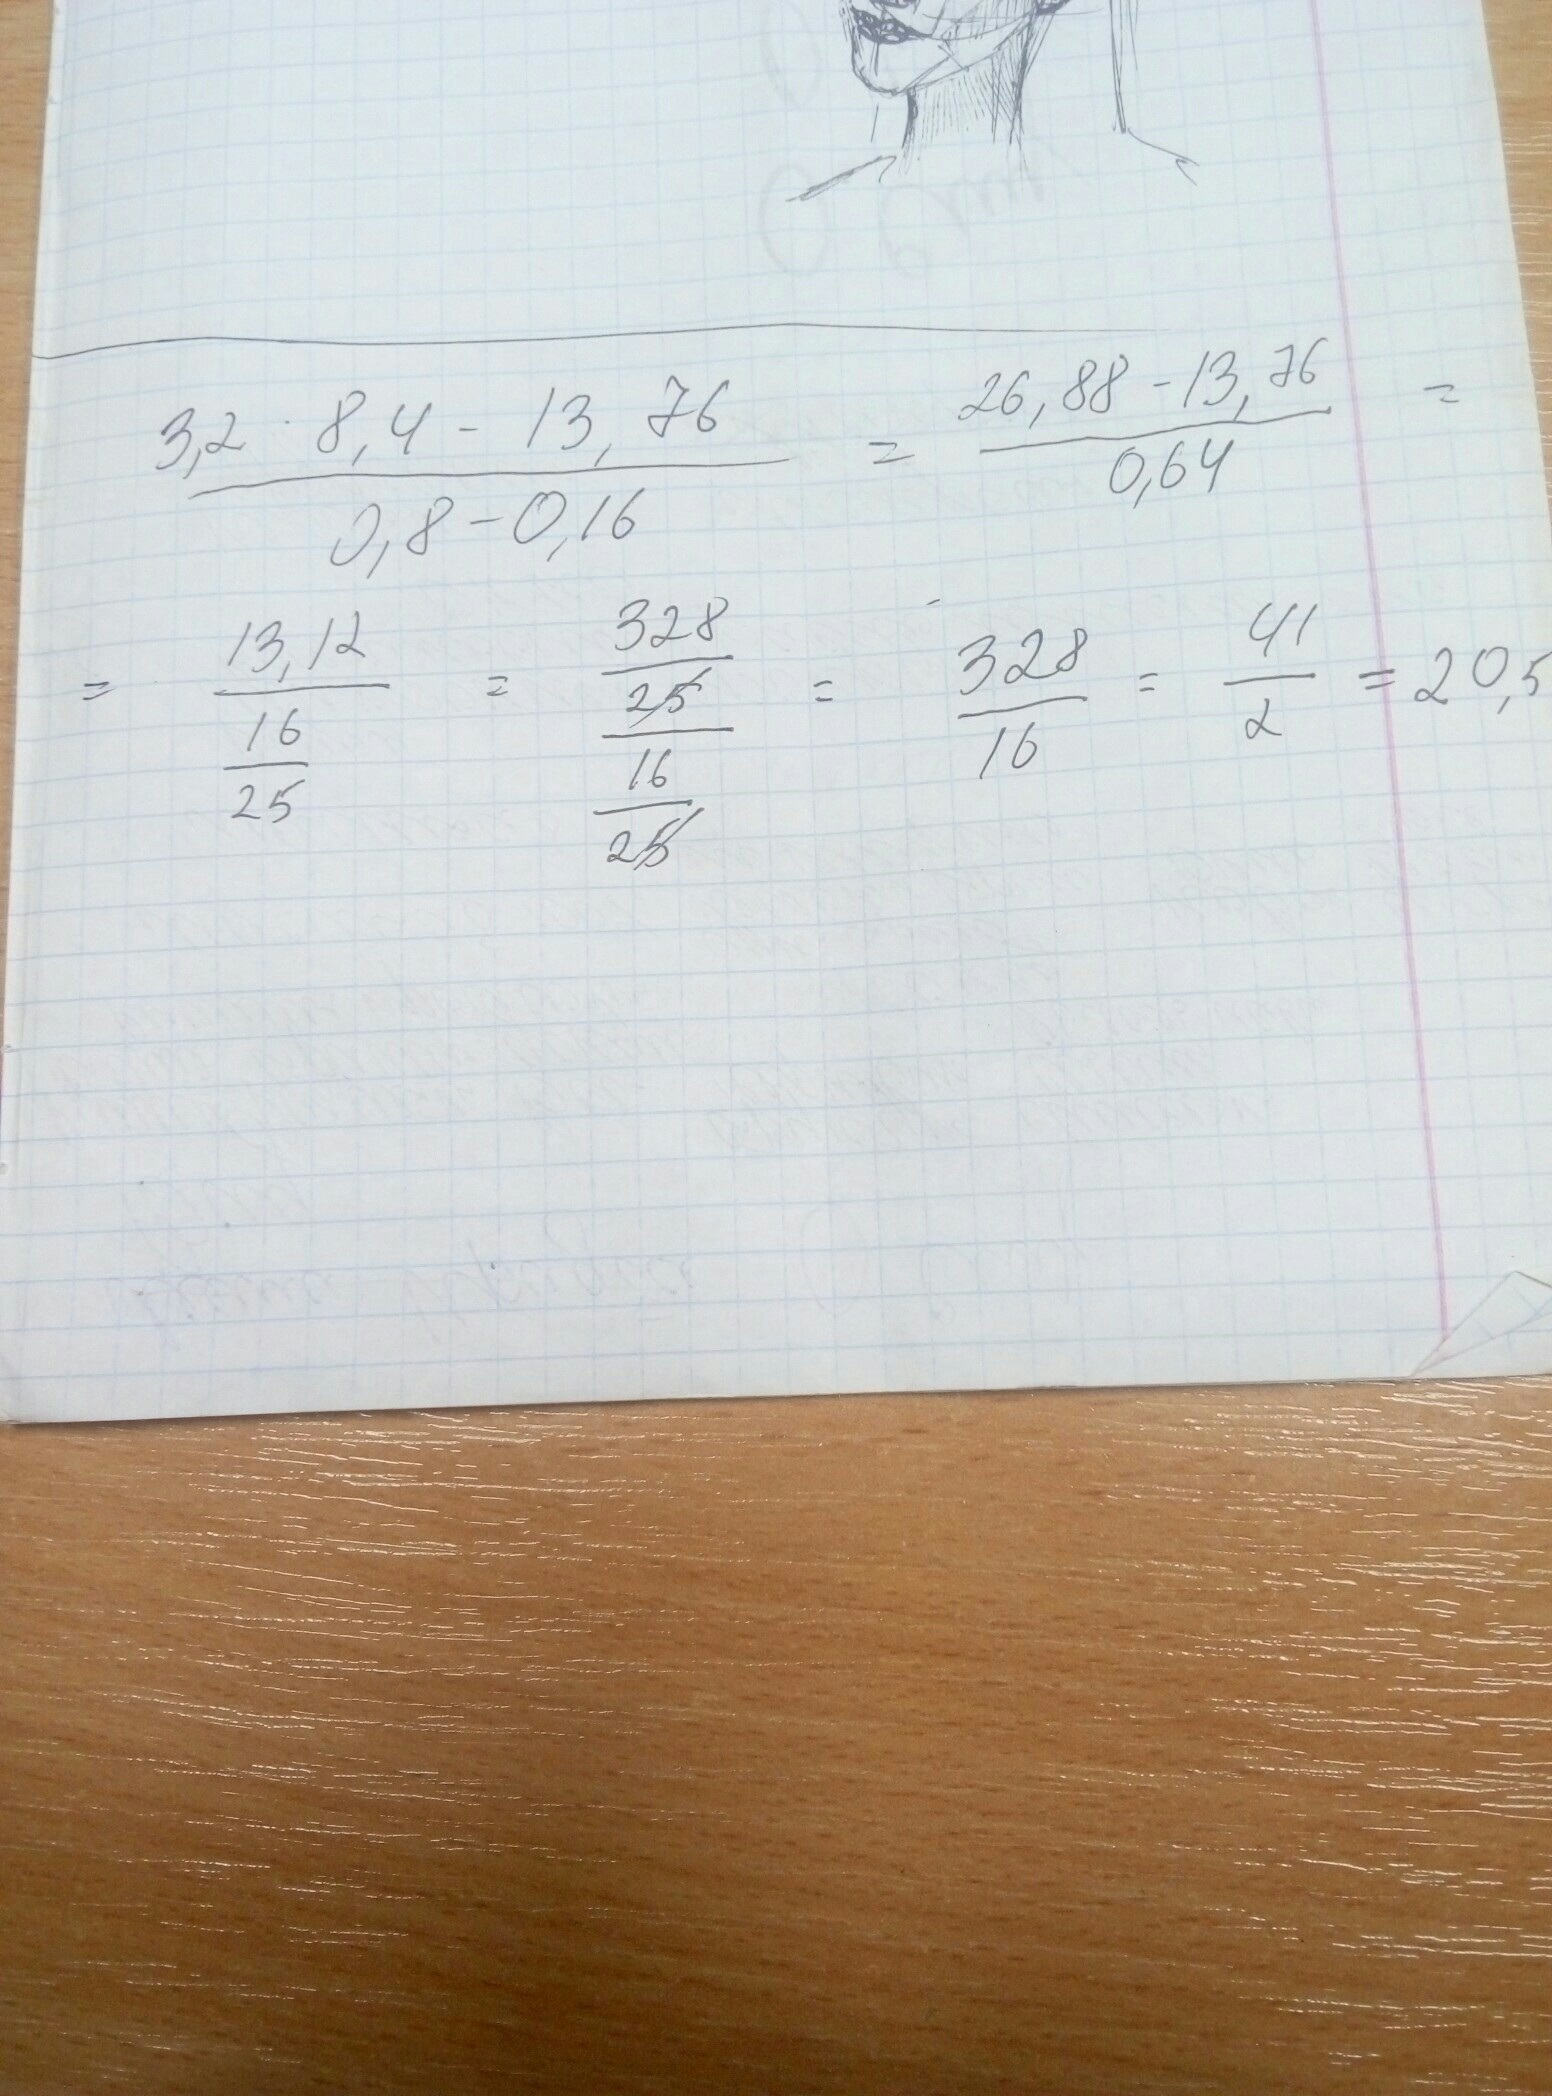 3,2 · 8,4 - 13,76 / 0,8 - 0,16 = 26,88 - 13,76 / 0,64 =
= 13,12 / 16/25 = 328/25 / 16/25 = 328/16 = 41/2 = 20,5